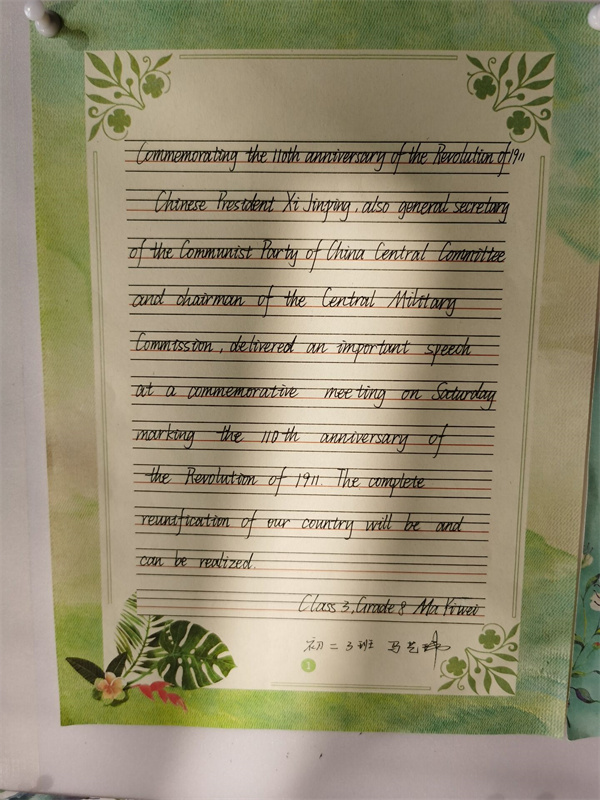 Commemorating the 110th anniversary of the Revolution of 1911
Chinese President Xi Jinping, also general secretary
of the Communist Party of China Central Committee
and chairman of the Central Military
Commission, delivered an important speech
at a commemorative meeting on Saturday
marking the 110th anniversary of
the Revolution of 1911. The complete
reunification of our country will be and
can be realized.
Class 3, Grade 8 Ma Yiwei
初二3班 马艺
1